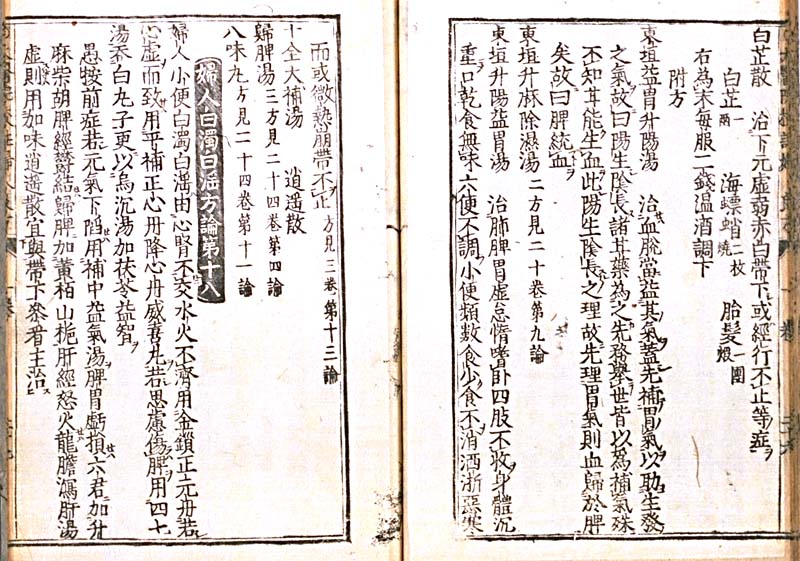 白芷散　治下元虛弱赤白帶下或經行不止等症
白芷一兩　海螵蛸二枚燒　胎髮一團煅
右為末每服二錢溫酒調下
附方
東垣益胃升陽湯　治血脫當益其氣蓋先補胃氣以助生發
之氣故曰陽生陰長諸藥為之先務舉世皆以為補氣殊
不知其能生血此陽生陰長之理故先理胃氣則血歸於脾
矣故曰脾統血
東垣升麻除濕湯　二方見二十卷第九論
東垣升陽益胃湯　治肺脾胃虛怠惰嗜卧四肢不收身體沉
重口乾食無味大便不調小便頻數食少食不消洒淅惡寒
而或微熱崩帶不止　方見三卷第十三論
十全大補湯　逍遥散
歸脾湯　三方見二十四卷第四論
八味丸　方見二十四卷第十一論
婦人白濁白淫方論第十八
婦人小便白濁白淫由心腎不交水火不濟用金鎖正元丹若
心虛而致用平補正心丹降心丹威喜丸若思慮傷脾用四七
湯吞白丸子更以烏沉湯加茯苓益智
愚按前症若元氣下陷用補中益氣湯脾胃虧損六君加升
麻柴胡脾經鬱結歸脾加黃柏山梔肝經怒火龍膽瀉肝湯
虛則用加味逍遥散宜與帶下參看主治